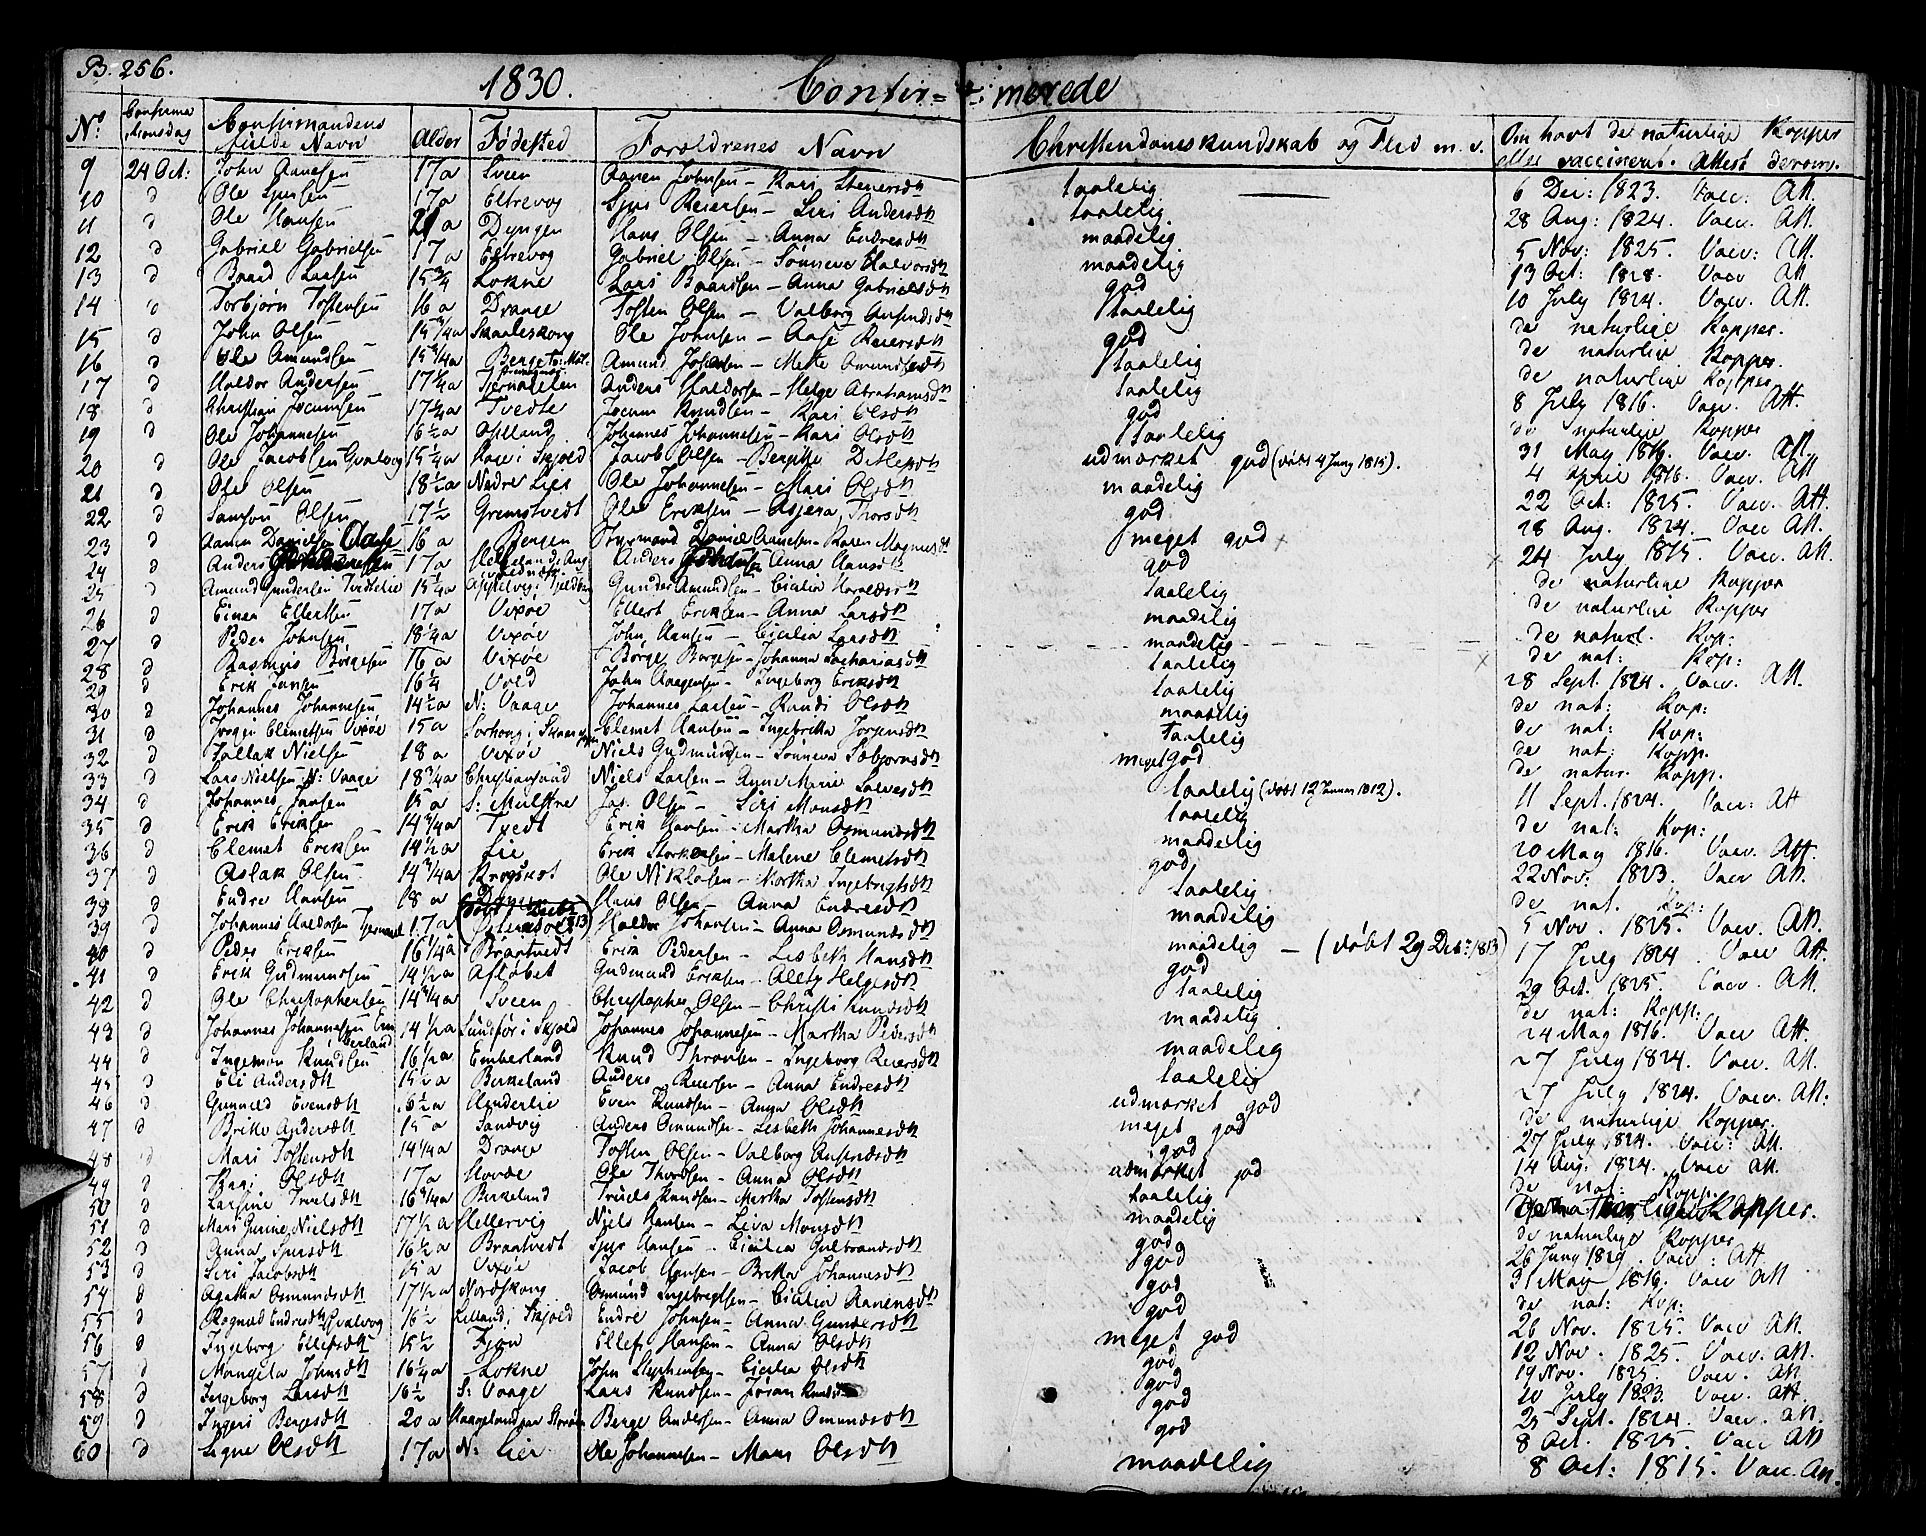 B. 256.
1830. Confir= merede
No. Confirmationsdag Confirmandens fulde Navn Alder Fødested Forældrenes Navn Christendomskundskab og Flid m. v. Om havt de naturlige Kopper eller vaccineret. Attest derom.
9 24 Oct: John Aanesen 17 a Sveen Aanen Johnsen – Kari Stenersdtt taalelig 6 Dec: 1823. Vacc: Att.
10 d Ole Sjursen 17 a Eltrevog Sjur Reiersen – Siri Andersdtt taalelig 28 Aug: 1824. Vacc. Att.
11 d Ole Hansen 21 a Dyngen Hans Olsen – Anna Endresdtt maadelig 5 Nov: 1825. Vacc: Att.
12 d Gabriel Gabrielsen 17 a Eltrevog Gabriel Olsen – Sønneva Halvorsdtt maadelig 13 Oct: 1828. Vacc Att
13 d Baard Larsen 15 3/4 Lokne Lars Baardsen – Anna Gabrielsdtt god 10 July 1824. Vacc. Att.
14 d Torbjørn Tostensen 16 a Drange Tosten Olsen – Valborg taalelig de naturlige Kopper.
15 d John Olsen 15 3/4 a Skaaleskong Ole Johnsen – Aase Reiersdtt god de naturlige Kopper.
16 d Ole Amundsen 15 3/4 a Berge Amund Johnsen – Mette Amundsdtt taalelig de naturlige Kopper
17 d Haldor Andersen 17 1/4 a Anders Haldorsen – Helge Abrahamsdtt taalelig 8 July 1816. Vacc. Att.
18 d Christian Jocumsen 17 1/4 a Tvedte Jocum Knudsen – Kari Olsdtt god de naturlige Kopper
19 d Ole Johannesen 16 1/2 a Øflland Johannes Johannesen – Kari Olsdtt taalelig 31 May 1816. Vacc. Att.
20 d Ole Jacobsen Qvalvog 15 1/4 a i Skjold Jacob Olsen – Bergitte Ditlefsdtt udmærket god (døbt 4 Juny 1815). 4 April 1816. Vacc. Att
21 d Ole Olsen 18 1/2 a Nedre Lies Ole Johannesen – Mari Olsdtt maadelig 22 Oct: 1825. Vacc. Att.
22 d Samson Olsen 17 1/2 Grimstvedt Ole Eriksen – Asjera Thorsdtt god 28 Aug. 1824. Vacc Att.
23 d Aanen Danielsen 16 a Bergen Styrmand Daniel Aanesen – Karen Magnusdt meget god 24 July 1815. Vacc. Att.
24 d Anders 17 a Anders Anna Hansdtt god de naturlige Kopper
25 d Amund Gundersen 15 1/4 a Gunder Amundsen – Cicilia Haraldsdtt taalelig de naturlige Kopper
26 d Einar Ellertsen 17 a Vixøe Ellert Eriksen – Anna Larsdtt maadelig de naturl. Kop:
27 d Peder Johnsen 18 1/4 a Vixøe John Hansen – Cicilia Larsdtt maadelig de nat: Kop:
28 d Rasmus Børgesen 16 a Vixøe Børge Børgesen – Johanna Zachariasdtt taalelig 28 Sept. 1824. Vacc. Att.
29 d Erik Jansen 16 1/4 Vold John Aagensen – Ingeborg Eriksdtt taalelig de nat: Kop:
30 d Johannes Johannesen 14 1/2 a N: Vaage Johannes Larsen – Randi Olsdtt maadelig de nat: Kop:
31 d Jørgen Clemetsen Vixøe 15 a Clemet Hansen – Ingebrikta Jørgensdtt taalelig de nat: Kopp.
32 d Tallak Nielsen 18 a Vixøe Niels Gudmundsen – Sønneva Tobjørnsdtt meget god de natur. Kopp.
33 d Lars Nielsen N: Vaage 18 3/4 a Christiansand Niels Larsen – Anne Marie Larsdtt taalelig (døbt 12 Januar 1812). 11 Sept. 1824. Vacc: Att
34 d Johannes Jansen 15 a S: Mulstre Jas. Olsen – Siri Monsdtt taalelig de nat: Kop:
35 d Erik Eriksen 14 3/4 a Tvedt Erik Hansen – Martha Osmundsdtt maadelig 20 May 1816. Vacc. Att.
36 d Clemet Eriksen 14 1/2 a Lie Erik Storkersen – Malene Clemetsdtt god 22 Nov: 1823. Vacc Att.
37 d Aslak Olsen 14 3/4 a Krogskot Ole Niklasen – Martha Ingebrigtsdtt taalelig de nat. Kop:
38 d Endre Hansen 18 a Hans Olsen – Anna Endresdtt maadelig 5 Nov. 1825. Vacc. Att.
39 d Johannes Haldorsen 17 a Haldor Johansen – Anna Osmundsdtt maadelig – (døbt 29 Decbr: 1813) 17 July 1824. Vacc Att.
40 d Peder Eriksen 16 1/4 a Braatvedt Erik Pedersen – Lisbeth Hansdtt god 29 Oct. 1825. Vacc. Att.
41 d Erik Gudmundsen 14 1/2 a Asløbet Gudmund Eriksen – Alety Helgesdtt taalelig de nat: Kopp:
42 d Ole Christophersen 14 3/4 a Sveen Christopher Olsen – Christi Knudsdtt maadelig 24 May 1816. Vacc Att.
43 d Johannes Johannesen Emberland 14 1/2 a Sundfør i Skjold Johannes Johannesen – Martha Pedersdtt maadelig 27 July 1824. Vacc. Att.
44 d Ingemon Knudsen 16 1/2 a Emberland Knud Thronsen – Ingeborg Reiersdtt taalelig 27 July 1824. Vacc. Att.
45 d Eli Andersdtt 15 1/2 a Birkeland Anders Reiersen – Anna Endresdtt udmærket god de naturlige Kopper.
46 d Gunnild Evensdtt 16 1/2 a Aanderlie Even Knudsen – Anna Olsdtt meget god 27 July 1824. Vacc: Att.
47 d Britte Andersdtt 15 a Sandvig Anders Osmundsen – Lisbeth Johannesdtt god 14 Aug. 1824. Vacc Att.
48 d Mari Tostensdtt 14 1/4 a Drange Tosten Olsen – Valborg udmærket god de nat: Kopp.
49 d Kari Olsdtt 17 a Hovøe Ole Thordsen – Anna Olsdtt taalelig de naturlige Kopper.
50 d Larsine Truelsdtt 16 3/4 a Birkeland Truels Knudsen – Martha Tostensdtt maadelig de naturlige Kopper
51 d Mari Gunne Nielsdtt 17 1/2 a Hellervig Niels Hansen – Siva Monsdtt god 26 Juny 1829. Vacc: Att.
52 d Anna Sjursdtt 16 1/2 a Braatvedt Sjur Hansen – Cicilia Gulbrandsdtt god 31 May 1816. Vacc Att
53 d Siri Jacobsdtt 15 a Vixøe Jacob Hansen – Britha Johannesdtt god de nat: Kop:
54 d Agatha Osmundsdtt 17 1/2 a Nordskong Osmund Ingebregtsen – Cicilia Aanensdtt god 26 Nov. 1825. Vacc Att.
55 d Ragnild Endresdtt Qvalvog 16 1/2 Lilland i Skjold Endre Johnsen – Anna Gundersdtt meget god 12 Nov. 1825. Vacc. Att.
56 d Ingeborg Ellefsdtt 15 1/2 Fjon Ellef Hansen – Anna Olsdtt god 19 Nov. 1825. Vacc. Att.
57 d Mangela Johnsdtt 16 1/4 a Lokne John Stephensen – Cicilia Olsdtt god 10 July 1823. Vacc. Att.
58 d Ingeborg Larsdtt 16 1/2 S: Vaage Lars Knudsen – Jøran Knudsdt god 25 Sept. 1824. Vacc. Att.
59 d Ingeri Bergesdtt 20 a Berge Andersen – Anna Osmundsdtt god 8 Oct. 1825. Vacc Att
60 d Signe Olsdtt 17 a N: Lier Ole Johannesen – Mari Olsdtt maadelig 8 Oct: 1815. Vacc. Att.